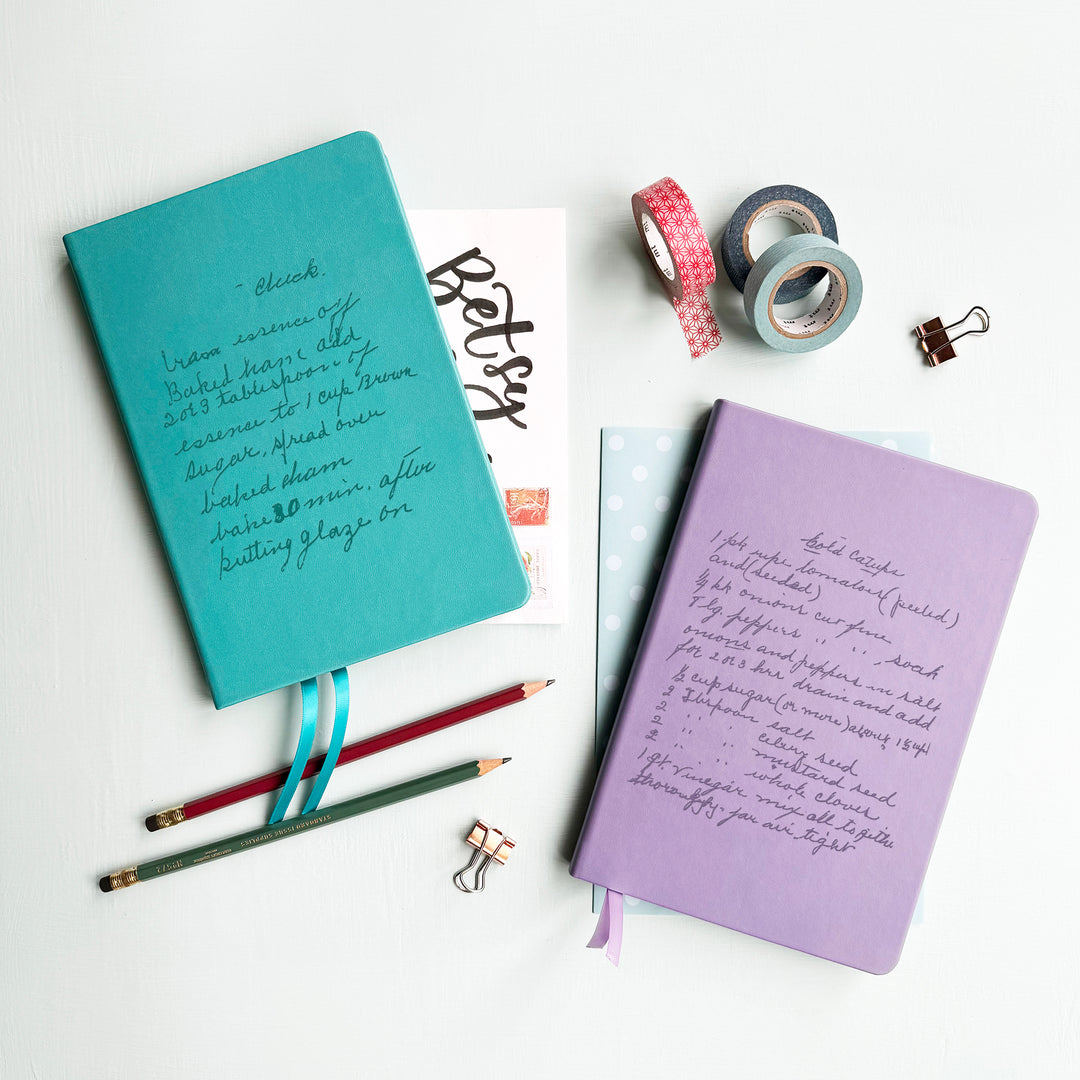 - Chuck.
essence off
Baked ham add
2 or 3 tablespoon of
essence to 1 cup Brown
sugar, spread over
baked ham
bake 30 min. after
putting glaze on
Betsy
mt
mt
mt
STANDARD ISSUE SUPPLIES
Nº 572
Cold Catsup
1 pk ripe tomatoes (peeled)
and (seeded)
1/4 pk onions cut fine
7 lg. peppers " " , soak
onions and peppers in salt
for 2 or 3 hrs drain and add
1/2 cup sugar (or more) about 1 1/2 cup)
2 Tbspoon salt
2 " " celery seed
2 " " mustard seed
2 " " whole cloves
1 qt vinegar mix all together
thoroughly - jar air tight